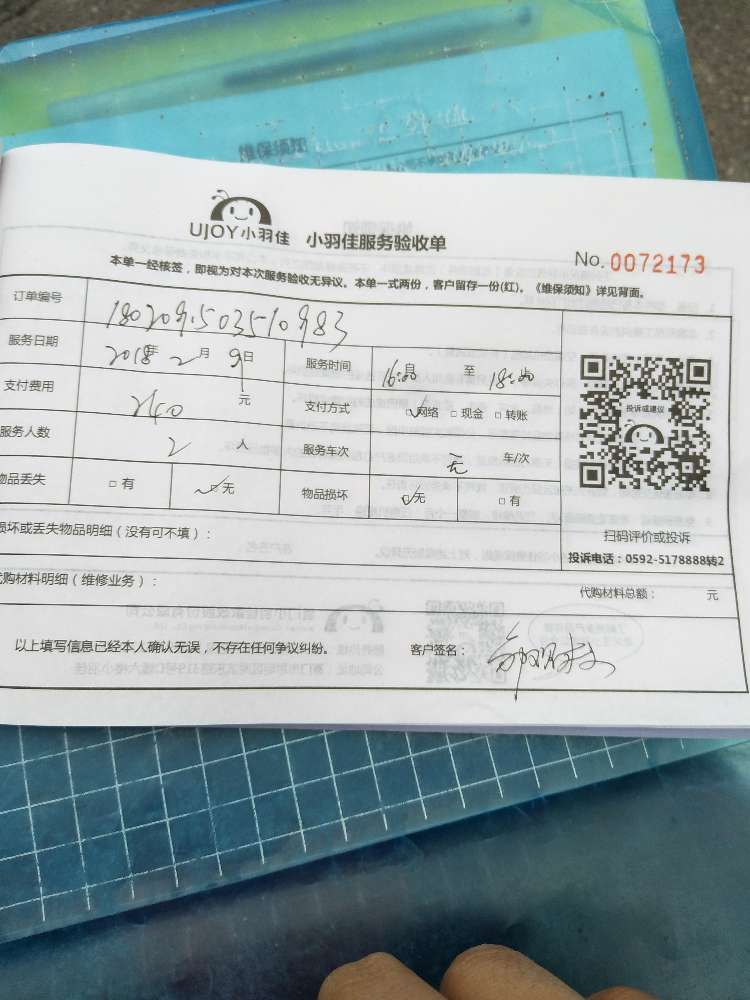 UJOY小羽佳 小羽佳服务验收单
No. 0072173
本单一经核签，即视为对本次服务验收无异议。本单一式两份，客户留存一份(红)。《维保须知》详见背面。
订单编号 180209150351​0983
服务日期 2018年 2月 9日 服务时间 16:00 至 18:00
支付费用 240 元 支付方式 ☑网络 □现金 □转账
服务人数 2 人 服务车次 无 车/次
物品丢失 □有 ☑无 物品损坏 ☑无 □有
投诉或建议
扫码评价或投诉
投诉电话：0592-5178888转2
损坏或丢失物品明细（没有可不填）：
代购材料明细（维修业务）： 代购材料总额： 元
以上填写信息已经本人确认无误，不存在任何争议纠纷。 客户签名：